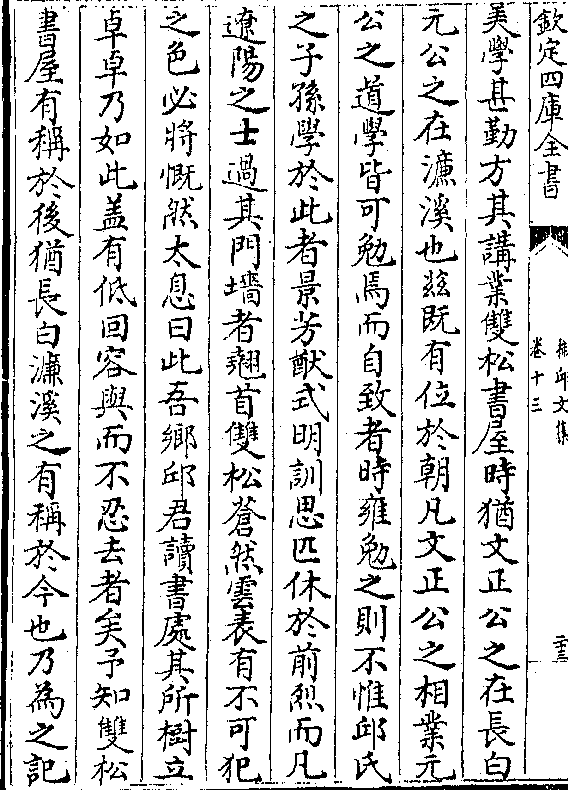 欽定四庫全書
卷十三
二十三
美學甚勤方其講業雙松書屋時猶文正公之在長白
元公之在濂溪也茲既有位於朝凡文正公之相業元
公之道學皆可勉焉而自致者時雍勉之則不惟邱氏
之子孫學於此者景芳猷式明訓思匹休於前烈而凡
遼陽之士過其門墻者翹首雙松蒼然雲表有不可犯
之色必將慨然太息曰此吾鄉邱君讀書處其所樹立
卓卓乃如此盖有低回容與而不忍去者矣予知雙松
書屋有稱於後猶長白濂溪之有稱於今也乃為之記